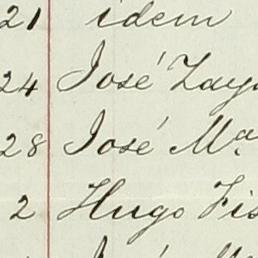 21 idem
24 José Zay
28 José Mª.
2 Hugo Fis